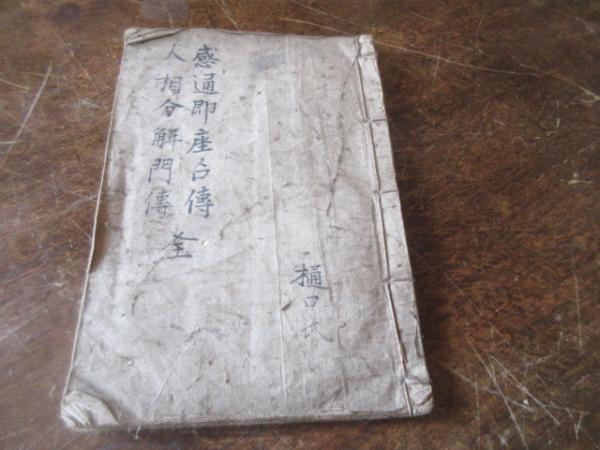 感通即座占傳
人相分解門傳
全
樋口氏